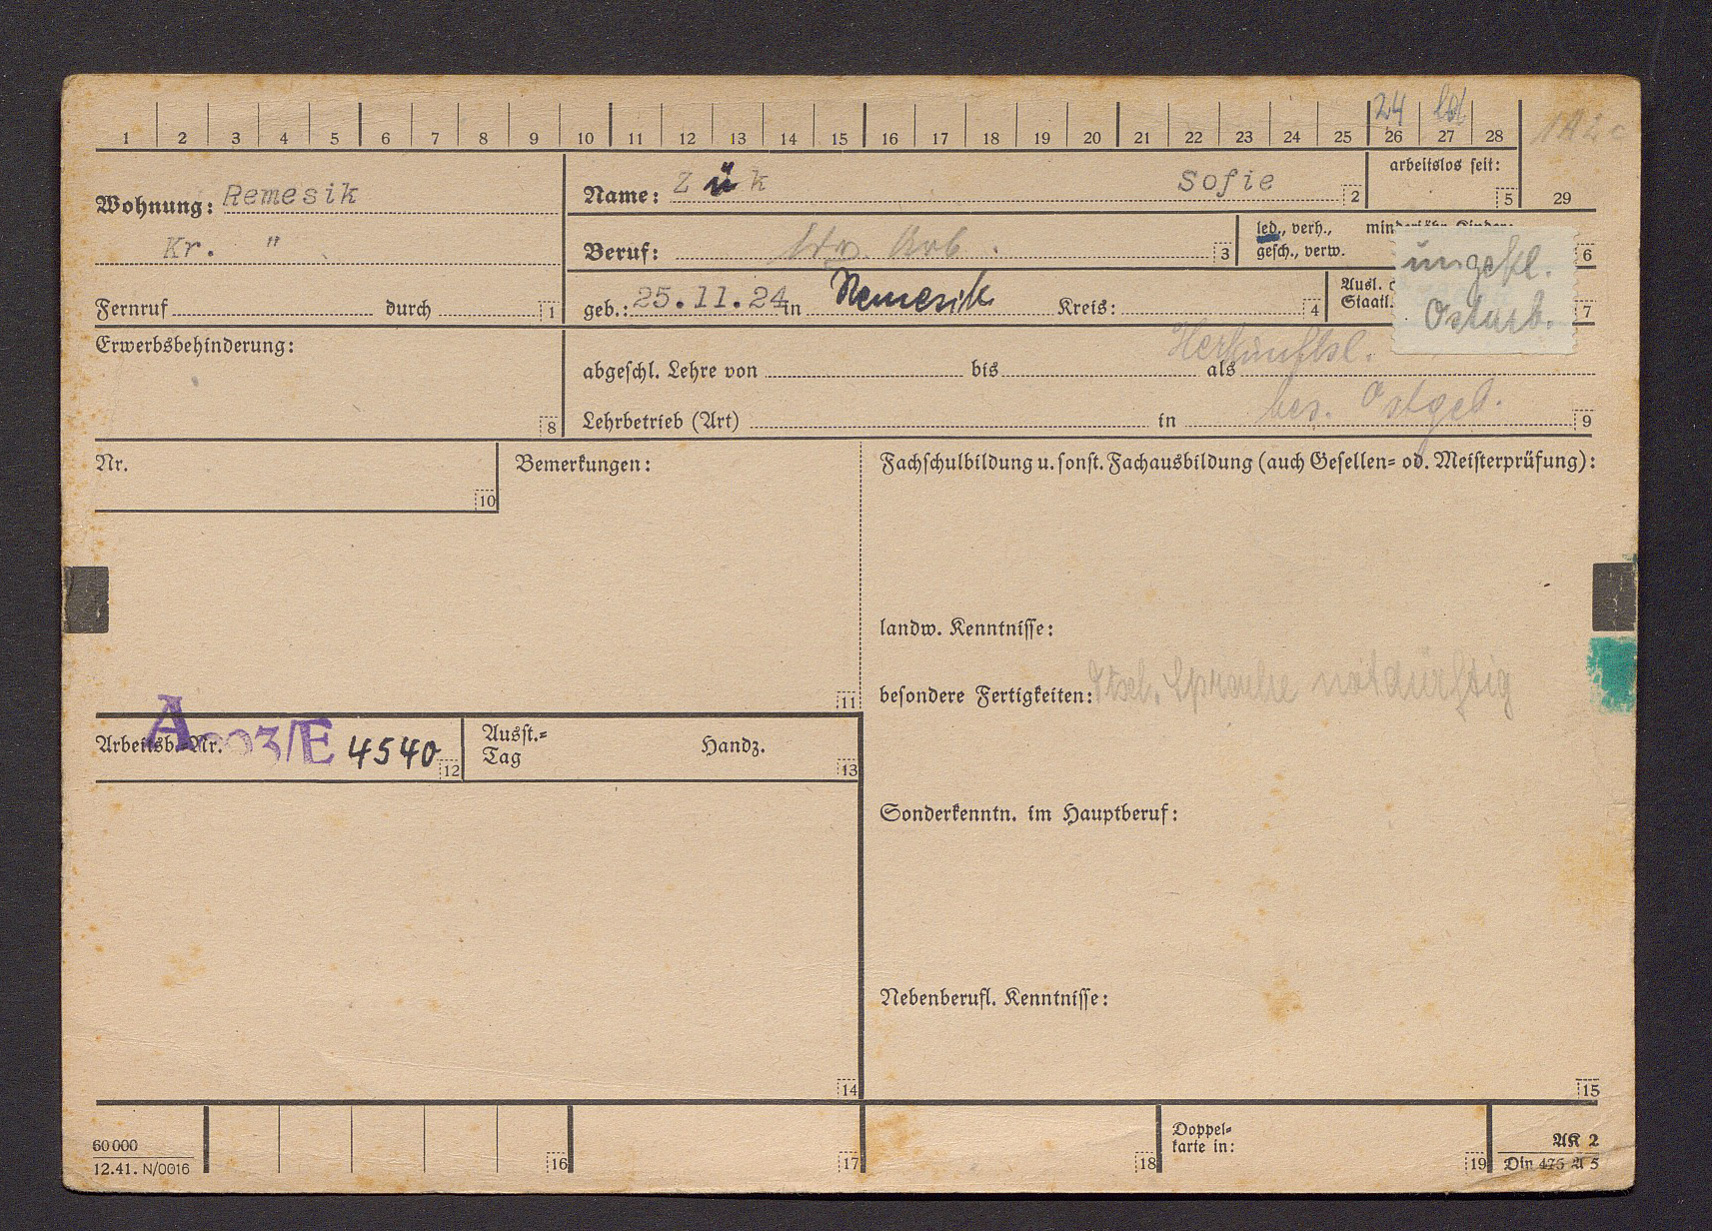 24 led
1 2 3 4 5 6 7 8 9 10 11 12 13 14 15 16 17 18 19 20 21 22 23 24 25 26 27 28
Wohnung: Remesik
Kr. "
Fernruf durch 1
Name: Zük Sofie 2
arbeitslos seit:
5 29
Beruf: Arb. 3
led., verh.,
gesch., verw.
6
ungekl.
Ostarb.
geb.: 25.11.24 in Remesik Kreis: 4
Ausl.
Staatl.
7
Erwerbsbehinderung:
8
Herkunftsl.
abgeschl. Lehre von bis als
bes. Ostgeb.
Lehrbetrieb (Art) in 9
Nr.
10
Bemerkungen:
11
Fachschulbildung u. sonst. Fachausbildung (auch Gesellen- od. Meisterprüfung):
landw. Kenntnisse:
besondere Fertigkeiten: dtsch. Sprache notdürftig
Arbeitsb.-Nr. A 03/E 4540 12
Ausst.-
Tag
Handz.
13
Sonderkenntn. im Hauptberuf:
Nebenberufl. Kenntnisse:
14
15
60 000
12.41. N/0016
16
17
18
Doppel-
karte in:
19
AK 2
Din 476 A 5